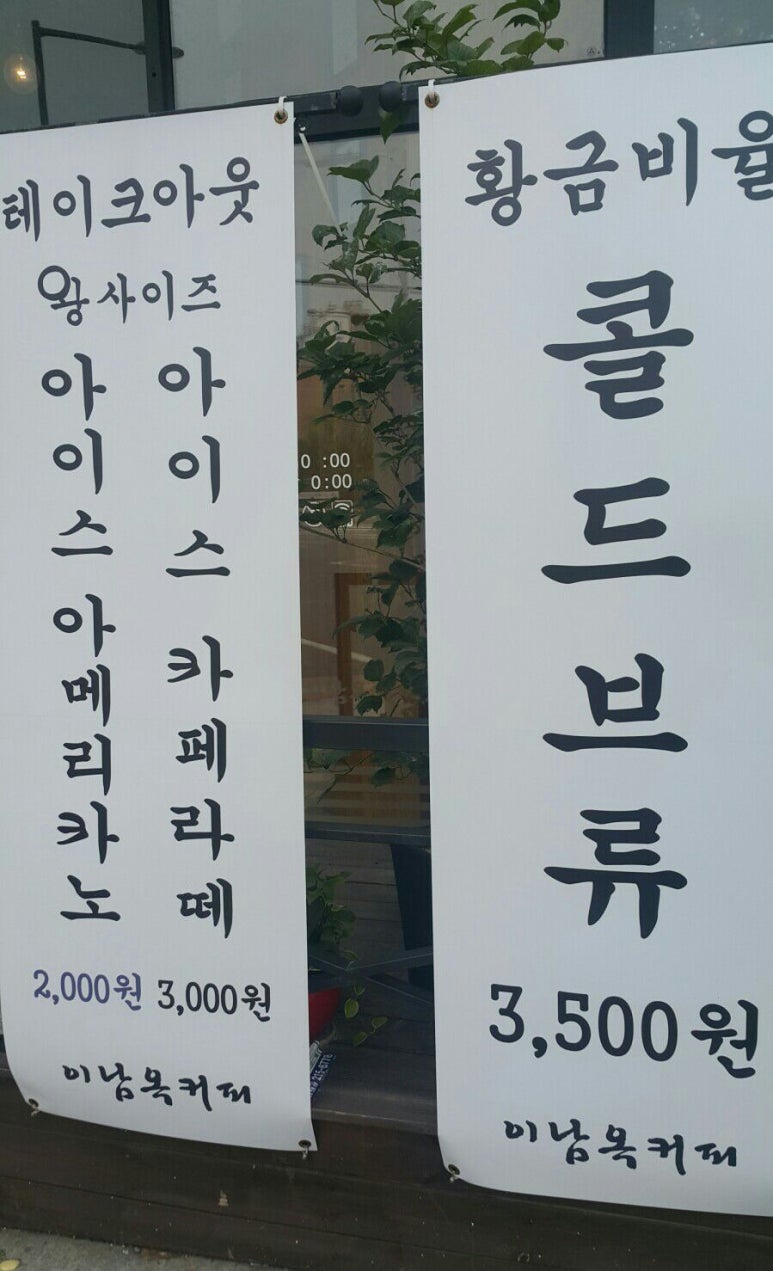 테이크아웃
왕사이즈
아이스 아메리카노
2,000원
아이스 카페라떼
3,000원
이남옥커피
0 :00
0:00
황금비율
콜드브류
3,500원
이남옥커피